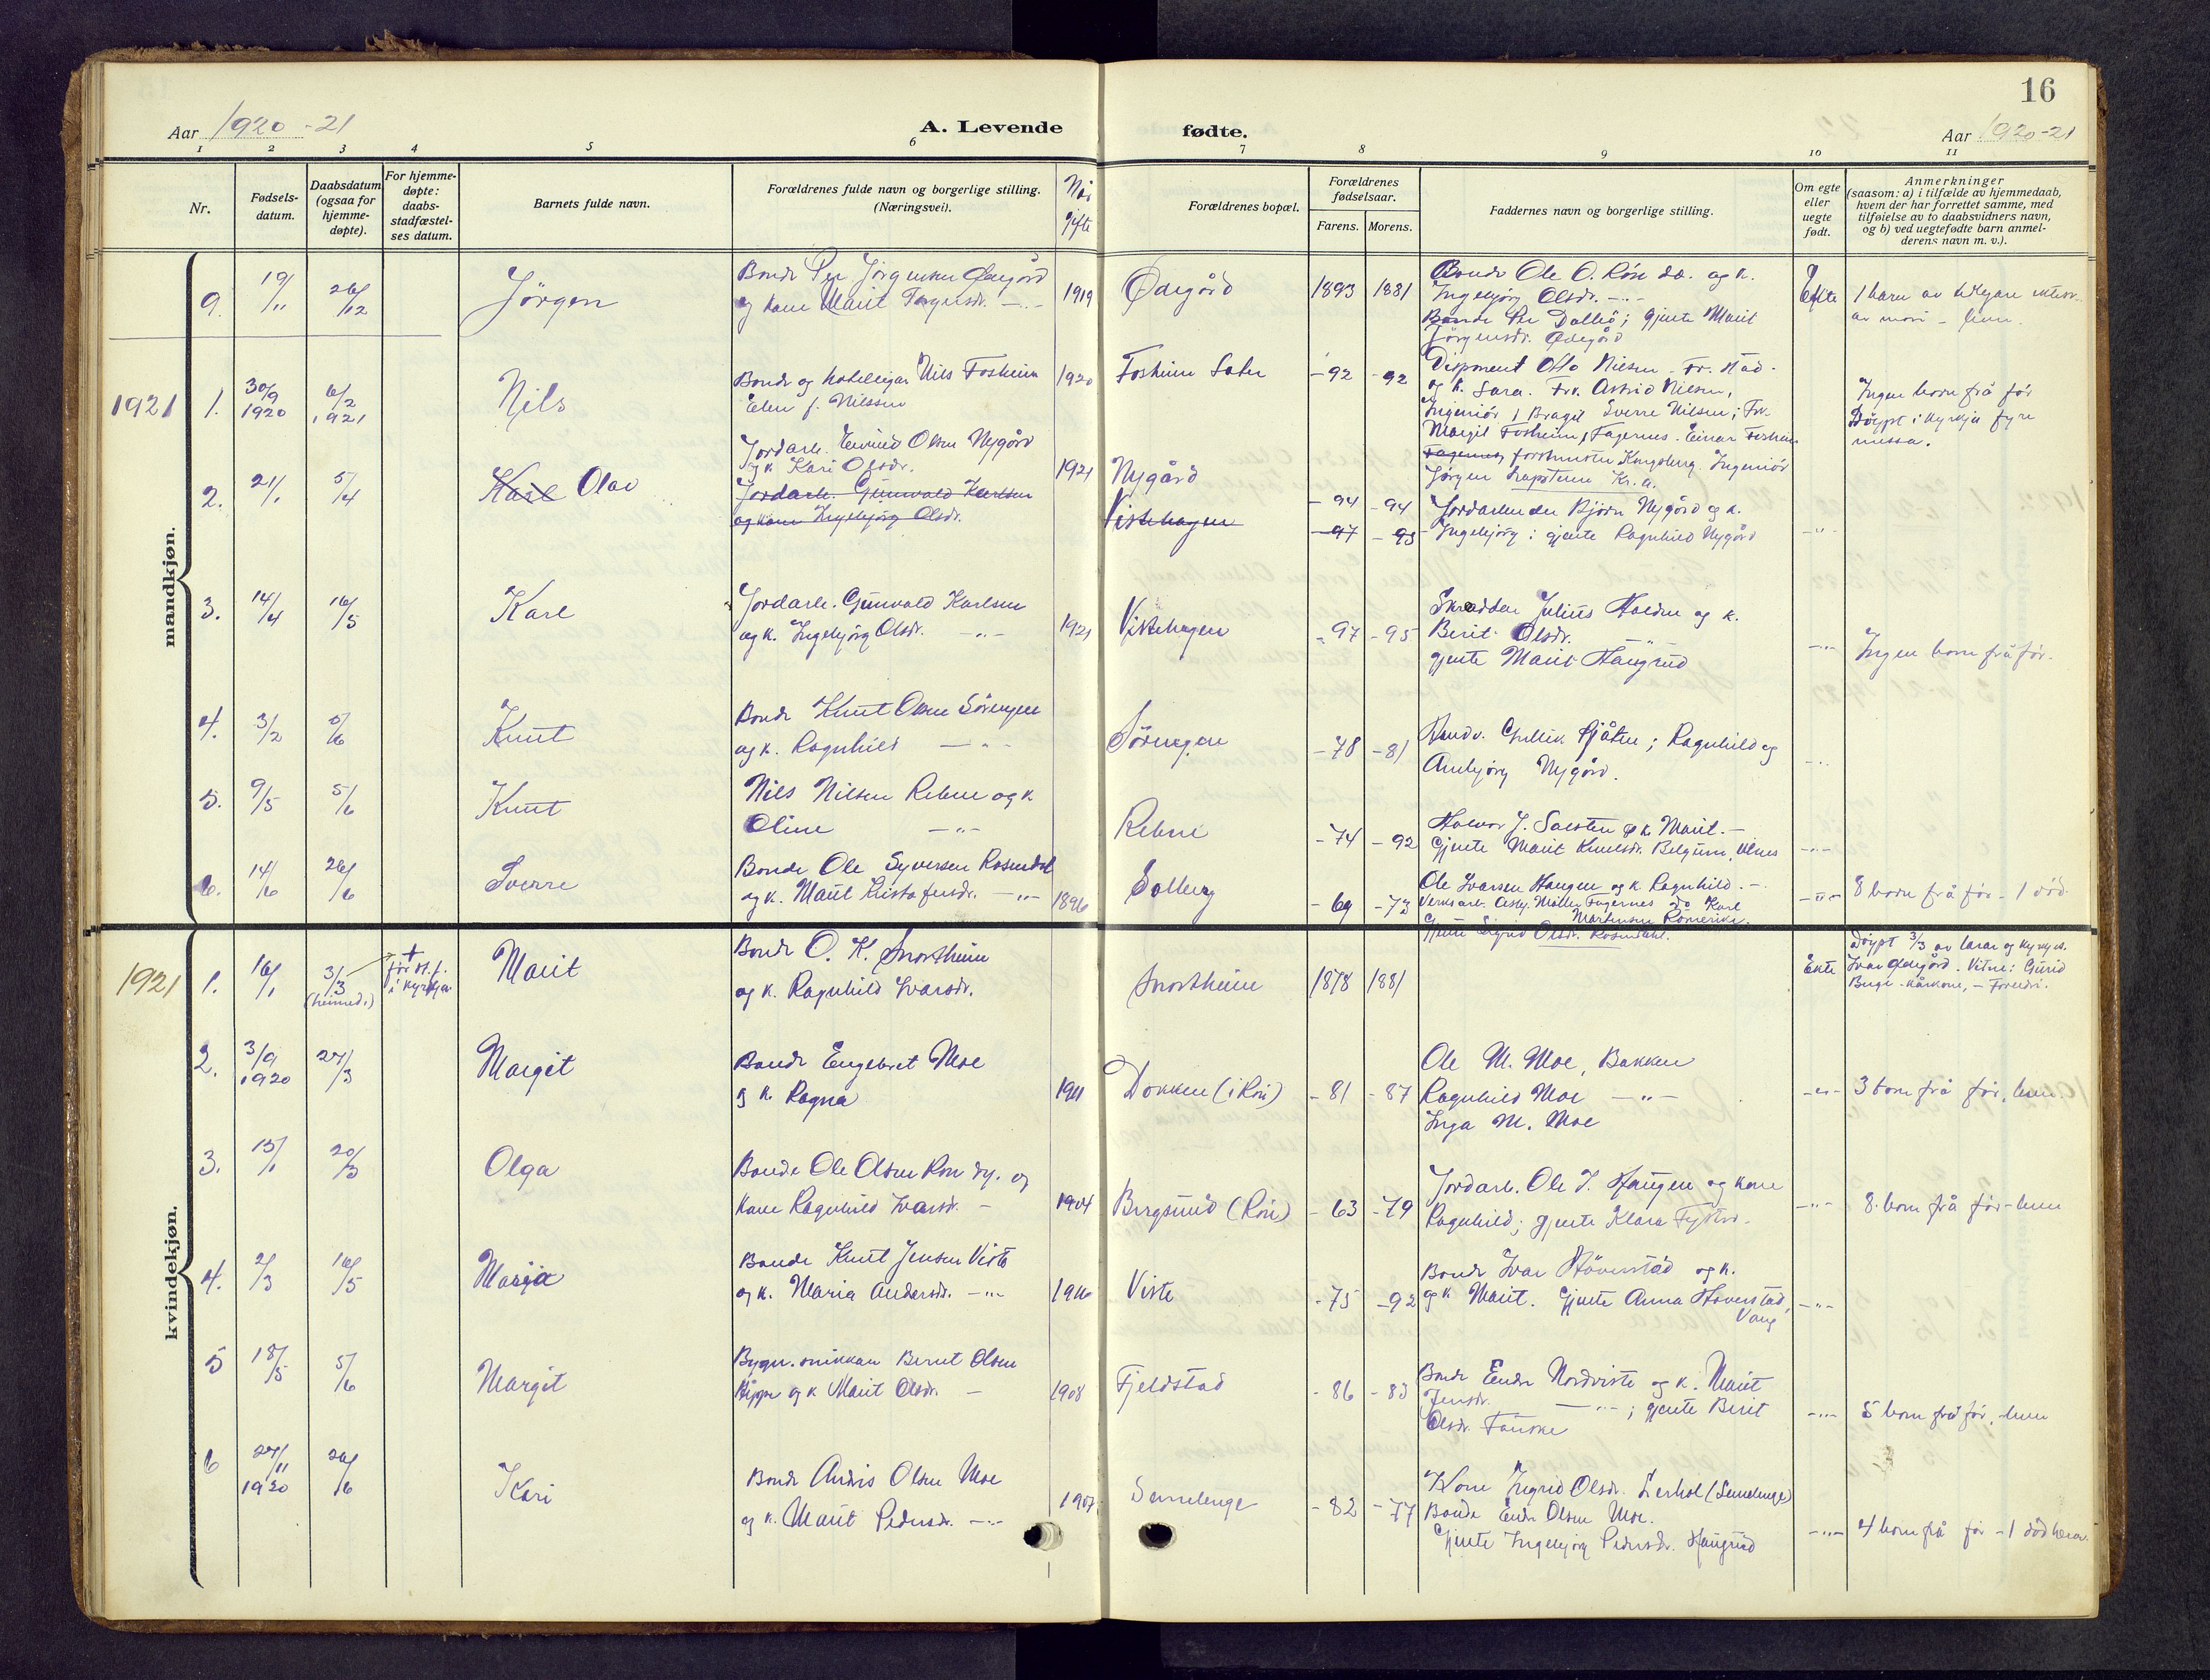 16
Aar 1920-21
A. Levende
fødte.
Aar 1920-21
1 2 3 4 5 6 7 8 9 10 11
Nr.
Fødsels-
datum.
Daabsdatum
(ogsaa for
hjemme-
døpte).
For hjemme-
døpte:
daabs-
stadfæstel-
ses datum.
Barnets fulde navn.
Forældrenes fulde navn og borgerlige stilling.
(Næringsvei).
Når
gifte
Forældrenes bopæl.
Forældrenes
fødselsaar.
Farens. Morens.
Faddernes navn og borgerlige stilling.
Om egte
eller
uegte
født.
Anmerkninger
(saasom: a) i tilfælde av hjemmedaab,
hvem der har forrettet samme, med
tilføielse av to daabsvidners navn,
og b) ved uegtefødte barn anmel-
derens navn m. v.).
mandkjøn.
9. 19/11 26/12 Jörgen
Bonde Per Jörgensen Ödegård
og kone Marit -"-
1919 Ödegård 1893 1881
Bonde Ole O. Rön og k.
Ingebjörg Olsdr. -"-
Bonde Per ; gjente Marit
Jörgensdr. Ödegård
Ekte
1 barn av
1921 1. 30/9 1920 6/2 1921 Nils
Bonde og hotelleigar Nils Fosheim
f. Nilssen
1920 Fosheim -92 -92
Disponent Otto Nielsen
og k. Sara. Frk. Astrid Nielsen,
Ingeniör Sverre Nilsen; Frk.
Margit Fosheim, Fagernes. Einar Fosheim
Fagernes, forstmester Kongsberg. Ingeniör
Jörgen Kr.a.
Ingen born frå för
Döypt i kyrkja fyre
messa.
2. 21/1 5/4 Karl Olav
Jordarb. Olsen Nygård
og k. Kari Olsdr.
Jordarb. Gunvald Karlsen
og kone Ingebjörg Olsdr.
1921 Nygård
Vistehagen
-94 -94
-97 -95
Jordarbeider Björn Nygård og k.
Ingebjörg; gjente Ragnhild Nygård
-"-
3. 14/4 16/5 Karl
Jordarb. Gunvald Karlsen
og k. Ingebjörg Olsdr. -"-
1921 Vistehagen -97 -95
Skredder Julius og k.
Berit Olsdr. -"-
gjente Marit Haugrud
-"- Ingen born frå för.
4. 3/2 5/6 Knut
Bonde Knut Olsen Sörengen
og k. Ragnhild -"-
Sörengen -78 -81
Gullik ; Ragnhild og
Anbjörg Nygård.
-"-
5. 9/5 5/6 Knut
Nils Nilsen Rebne og k
Oline -"-
Rebne -74 -92
Halvor J. og k. Marit. -
Gjente Marit Knutsdr. Belgum, Ulnes
-"-
6. 14/6 26/6 Sverre
Bonde Ole Syversen Rosendal
og k. Marit Kristofersdr. -"-
1896 Solberg -69 -73
Ole Ivarsen Haugen og k Ragnhild. -
Verksarb. Möller Fagernes do Karl
Martinsen Romerike.
Gjente Sigrid Olsdr. Rosendahl.
-"- 8 born frå för - 1 död
kvindekjøn.
1921 1. 16/1 3/3 (heimed.)
+
för st.f.
i kyrkja
Marit
Bonde O. K. Snortheim
og k. Ragnhild Ivarsdr.
Snortheim 1878 1881
Ekte
Döypt 3/3 av lærar og kyrkjes.
Ivar Ödegård. Vitne: Gurid
Berge - kårkone, - Foreldri.
2. 3/9 1920 27/3 Margit
Bonde Engebret Moe
og k. Ragna
1911 Dokken (i Rön) -81 -87
Ole M. Moe, Bakken
Ragnhild Moe -"-
Inga M. Moe
-"- 3 born frå för,
3. 15/1 20/3 Olga
Bonde Ole Olsen Rön og
kone Ragnhild Ivarsd. -
1904 Bergsund (Rön) -63 -79
Jordarb. Ole I. Haugen og kone
Ragnhild; gjente Klara
-"- 8 born frå för -
4. 2/3 16/5 Marja
Bonde Knut Jensen Viste
og k. Maria Andersdr. -"-
1916 Viste -75 -92
Bonde Ivar Höverstad og k.
og k. Marit. Gjente Anna Höverstad,
Vang
-"-
5 18/5 5/6 Margit
Bygn. snikkar Bernt Olsen
og k Marit Olsdr. -
1908 Fjeldstad -86 -83
Bonde Endre Nordviste og k. Marit
Jensdr. -"- ; gjente Berit
Olsdr.
-"- 5 born frå för,
6 27/11 1920 26/6 Kari
Bonde Andris Olsen Moe
og k. Marit Pedersdr. -"-
1907 Semelenge -82 -77
Kone Ingrid Olsdr. (Semelenge)
Bonde Endr. Olsen Moe.
Gjente Ingebjörg Pedersdr. Haugrud
-"- 4 born frå för - 1 död